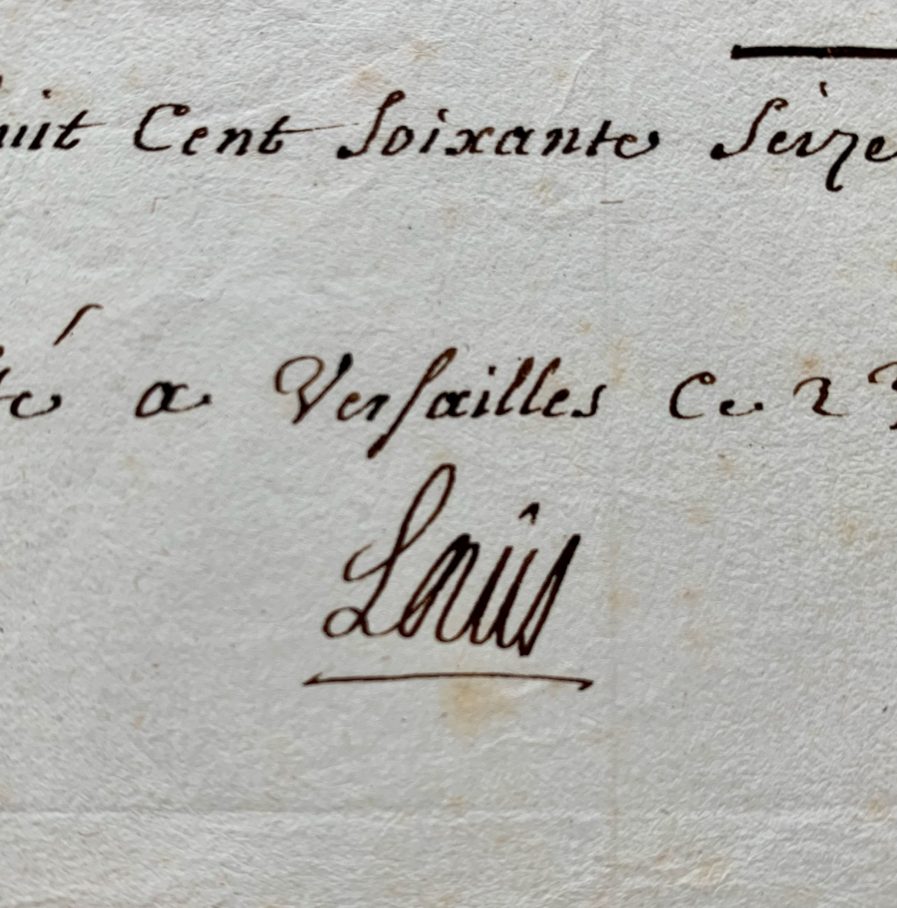 uit Cent Soixante Seize
té a Versailles Ce 23
Louis